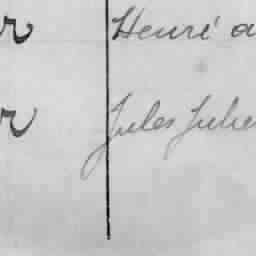 r Henré a
r Jules Julie